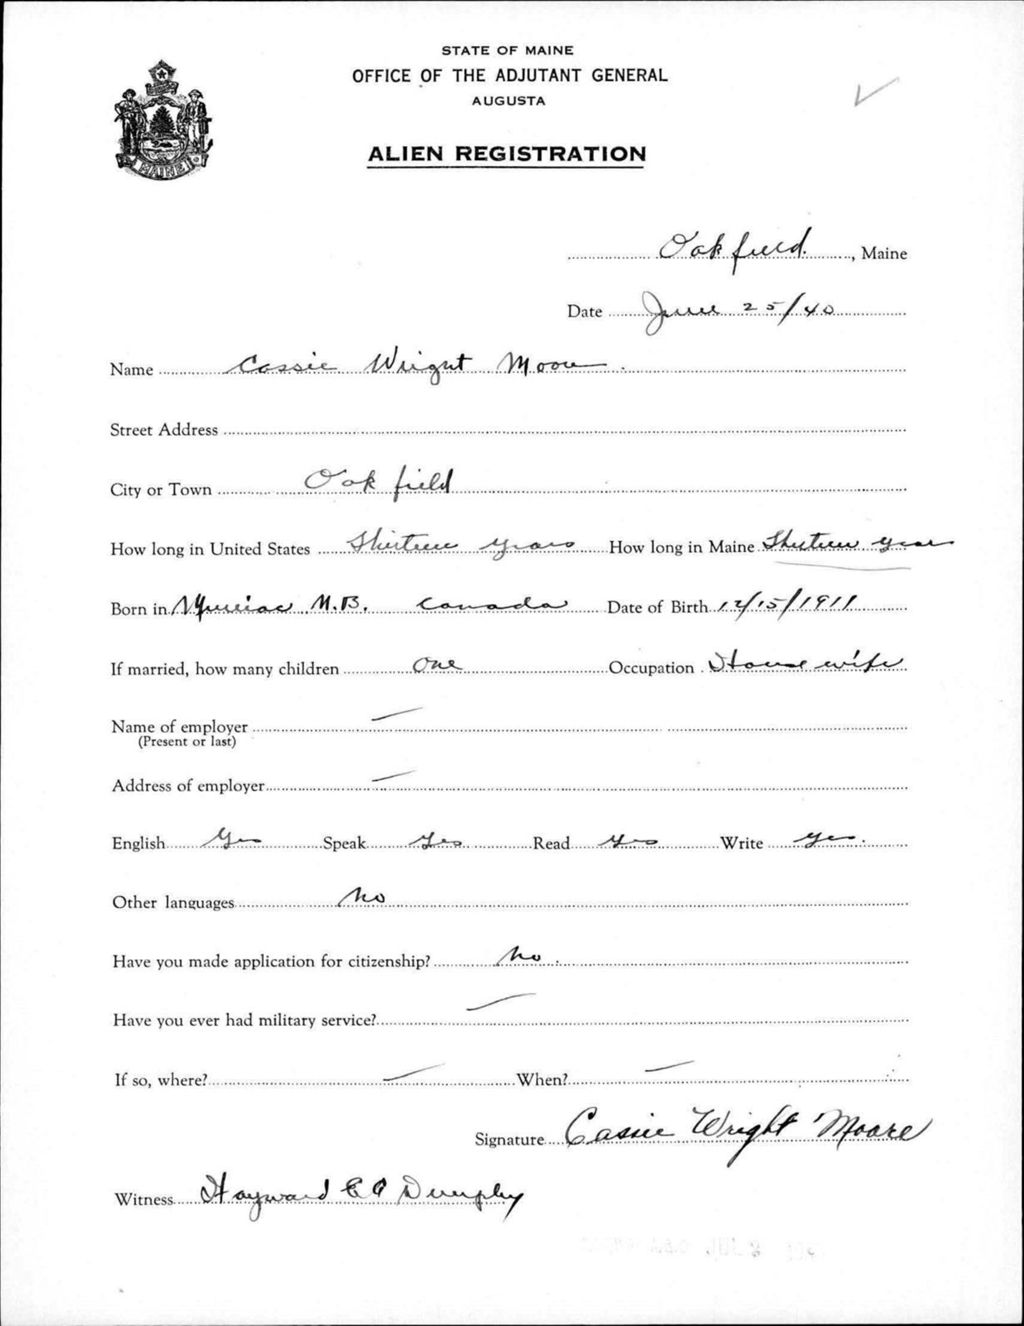 STATE OF MAINE
OFFICE OF THE ADJUTANT GENERAL
AUGUSTA
ALIEN REGISTRATION
MAINE
Oakfield, Maine
Date June 25/40
Name Cassie Wright Moore
Street Address
City or Town Oakfield
How long in United States Thirteen years How long in Maine Thirteen years
Born in N.B. Canada Date of Birth 12/15/1911
If married, how many children One Occupation House wife
Name of employer —
(Present or last)
Address of employer —
English Yes Speak Yes Read Yes Write Yes.
Other languages No
Have you made application for citizenship? No.
Have you ever had military service? —
If so, where? — When? —
Signature Cassie Wright Moore
Witness Hayward Dumphy